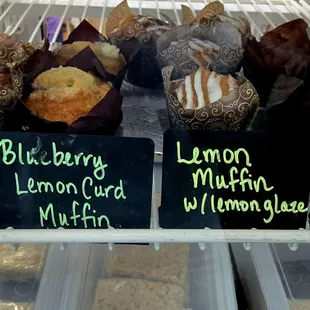 Blueberry
Lemon Curd
Muffin
Lemon
Muffin
w/lemon glaze